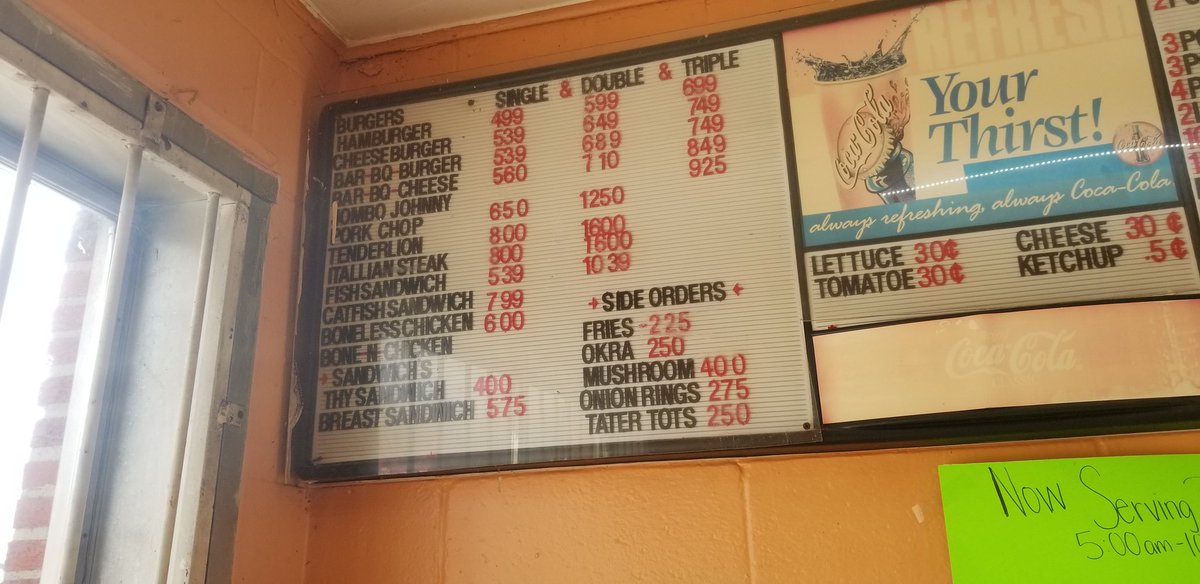 BURGERS SINGLE & DOUBLE & TRIPLE
HAMBURGER 499 599 699
CHEESEBURGER 539 649 749
BAR-BQ-BURGER 539 689 749
BAR-BQ-CHEESE 560 710 849
JOMBO JOHNNY 925
PORK CHOP 650 1250
TENDERLION 800 1600
ITALLIAN STEAK 800 1600
FISH SANDWICH 539 1039
CATFISH SANDWICH 799
BONELESS CHICKEN 600
BONE-N-CHICKEN
SANDWICH'S
THY SANDWICH 400
BREAST SANDWICH 575
SIDE ORDERS
FRIES 225
OKRA 250
MUSHROOM 400
ONION RINGS 275
TATER TOTS 250
REFRESH
Your
Thirst!
Coca-Cola
always refreshing, always Coca-Cola
LETTUCE 30¢ CHEESE 30¢
TOMATOE 30¢ KETCHUP .5¢
Coca-Cola
Now Serving
5:00am-